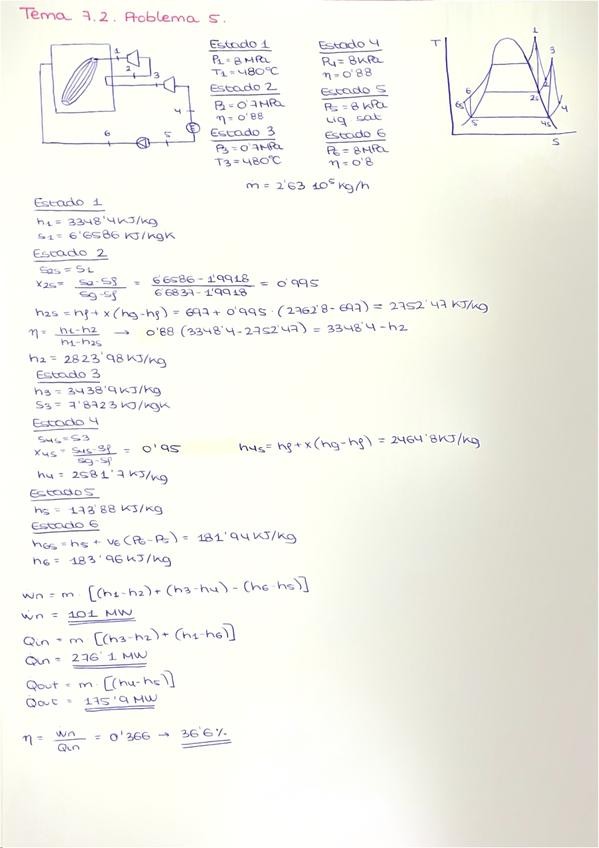 Tema 7.2. Problema 5.
1
2
3
4
5
6
Estado 1
P1 = 8 MPa
T1 = 480ºC
Estado 2
P2 = 0'7 MPa
η = 0'88
Estado 3
P3 = 0'7 MPa
T3 = 480ºC
Estado 4
P4 = 8 kPa
η = 0'88
Estado 5
P5 = 8 kPa
Liq sat
Estado 6
P6 = 8 MPa
η = 0'8
T
1
3
2
2s
6
6s
5
4
4s
S
m = 2'63 10⁵ kg/h
Estado 1
h1 = 3348'4 KJ/kg
s1 = 6'6586 KJ/kgK
Estado 2
s2s = s1
x2s = s2-sf / sg-sf = 6'6586 - 1'9918 / 6'6837 - 1'9918 = 0'995
h2s = hf + x (hg - hf) = 697 + 0'995 · (2762'8 - 697) = 2752'47 KJ/kg
η = h1-h2 / h1-h2s → 0'88 (3348'4 - 2752'47) = 3348'4 - h2
h2 = 2823'98 KJ/kg
Estado 3
h3 = 3438'9 KJ/kg
s3 = 7'8723 KJ/kgK
Estado 4
s4s = s3
x4s = s4s-sf / sg-sf = 0'95 h4s = hf + x (hg - hf) = 2464'8 KJ/kg
h4 = 2581'7 KJ/kg
Estado 5
h5 = 173'88 KJ/kg
Estado 6
h6s = h5 + v6 (P6 - P5) = 181'94 KJ/kg
h6 = 183'96 KJ/kg
Wn = m · [(h1-h2) + (h3-h4) - (h6-h5)]
Wn = 101 MW
Qin = m [(h3-h2) + (h1-h6)]
Qin = 276'1 MW
Qout = m · [(h4-h5)]
Qout = 175'9 MW
η = Wn / Qin = 0'366 → 36'6%